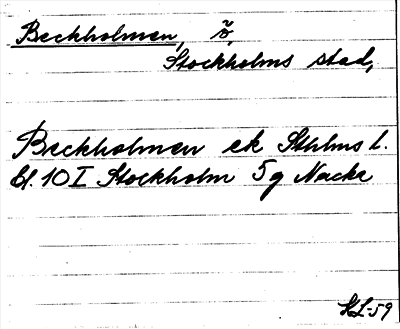 Beckholmen, ö,
Stockholms stad,
Beckholmen ek Sthlms l.
Bl. 10 I Stockholm 5g Nacka
HL-59